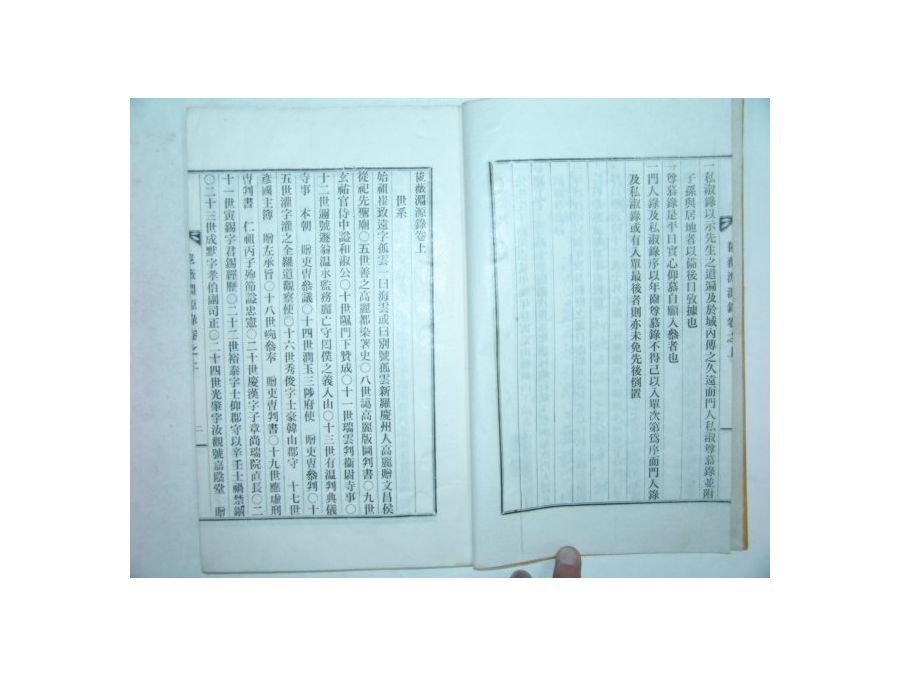 一私淑錄以示先生之道遍及於域內傳之久遠而門人私淑尊慕錄並附
子孫與居地者以備後日攷據也
一尊慕錄是平日實心仰慕自願入叅者也
一門人錄及私淑錄序以年齒尊慕錄不得已以入單次第爲序而門人錄
及私淑錄或有入單最後者則亦未免先後倒置
淵源錄卷上
世系
始祖崔致遠字孤雲一曰海雲或曰別號孤雲新羅慶州人高麗贈文昌侯
從祀先聖廟○五世善之高麗都染署史○八世謁高麗版圖判書○九世
玄祐官侍中諡和淑公○十世門下贊成○十一世瑞雲判衞尉寺事○
十二世遯翁溫水監務麗亡守罔僕之義入山○十三世有溫判典儀
寺事 本朝 贈吏曺叅議○十四世潤玉三陟府使 贈吏曺叅判○十
五世灌字灌之全羅道觀察使○十六世秀俊字士豪韓山郡守 十七世
彥國主簿 贈左承旨○十八世叅奉 贈吏曺判書○十九世應虛刑
曺判書 仁祖丙子殉節諡忠憲○二十世慶漢字子章尙瑞院直長○二
十一世寅錫字君錫經歷○二十二世裕泰字士仰郡守以辛壬士禍禁錮
○二十三世成默字孝伯副司正○二十四世光肇字汝觀號嘉陰堂 贈